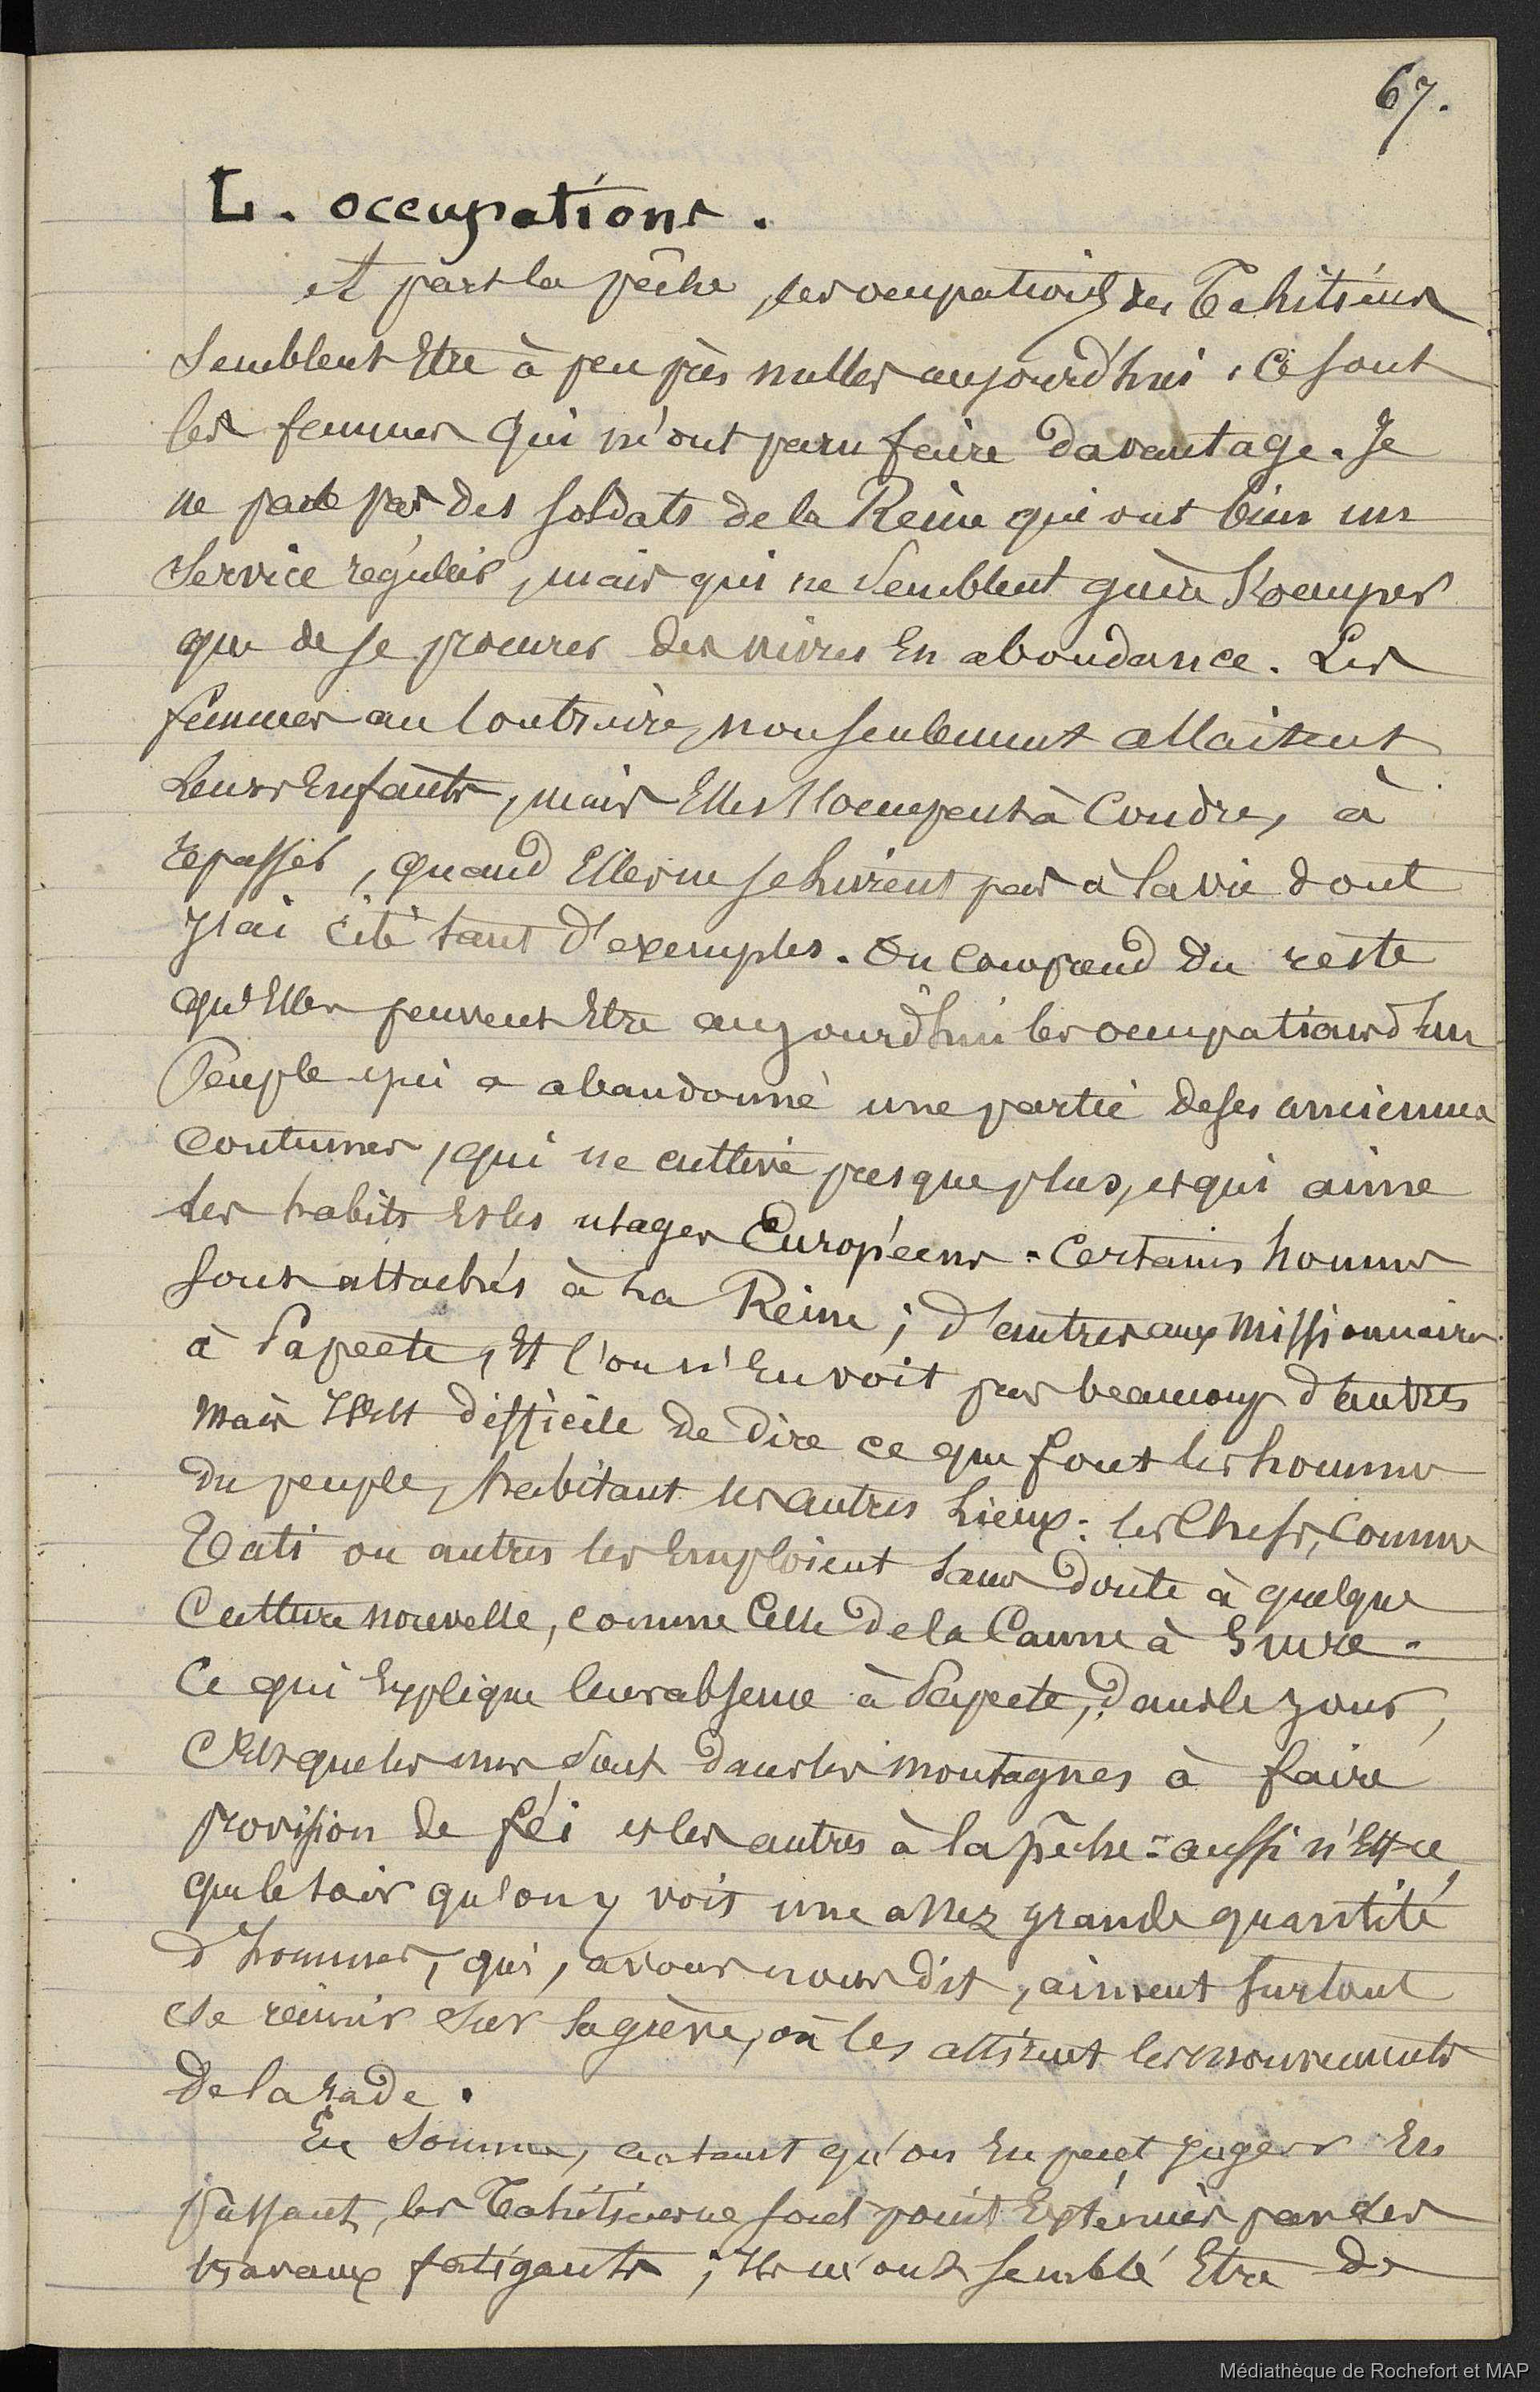 67.
L. occupations.
A part la pêche, les ocupations des Tahitiens
semblent Etre à peu près nulles aujourd'hui, Ce sont
les femmes qui m'ont paru faire davantage. Je
ne parle pas des soldats de la Reine qui ont bien un
service régulier, mais qui ne semblent guère s'occuper
que de se procurer des vivres En abondance. Les
femmes au Contraire, non seulement allaitent
Leurs Enfants, mais Elles s'occupent à Coudre, à
repasser, quand Elles ne se livrent pas à la vie dont
J'ai cité tant d'exemples. On Comprend du reste
qu'Elles peuvent Etre aujourd'hui les occupations d'un
Peuple qui a abandonné une partie de ses anciennes
Coutumes, qui ne cultive presque plus, et qui aime
les habits Et les usages Européens. Certains hommes
sont attachés à la Reine; d'autres aux Missionnaires
à Papeete, Et l'on n'En voit pas beaucoup d'autres
Mais il Est difficile de dire ce que font les hommes
du peuple, habitant les autres Lieux: les Chefs, Comme
Tati ou autres les Emploient sans doute à quelque
Culture nouvelle, comme Celle de la Canne à sucre.
Ce qui Explique leur absence à Papeete, dans le jour,
C'Est que les uns sont dans les montagnes à faire
provision de féi et les autres à la pêche: aussi n'Est ce,
que le soir qu'on y voit une assez grande quantité
d'hommes, qui, avons nous dit, aiment surtout
se réunir sur la grève, où les attirent les mouvements
De la rade.
En somme, autant qu'on En peut juger En
Passant, les Tahitiens ne sont point Exténués par des
travaux fatigants; Ils m'ont semblé Etre de
Médiathèque de Rochefort et MAP